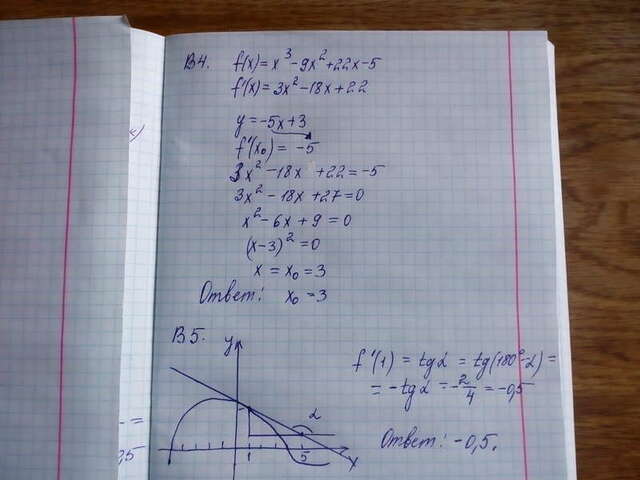 В4. f(x)=x³-9x²+22x-5
f'(x)=3x²-18x+22
y=-5x+3
f'(x₀)= -5
3x²-18x+22=-5
3x²-18x+27=0
x²-6x+9=0
(x-3)²=0
x=x₀=3
Ответ: x₀=3
В5.
y
f'(1)=tgα=tg(180°-α)=
=-tgα=-2/4=-0,5
α
Ответ: -0,5.
1 5 x